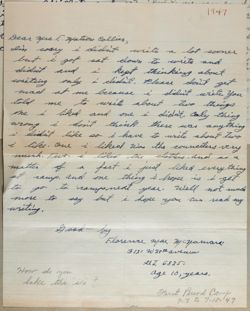 1947
Dear Mrs & Mister Collins,
Im sorry i didn't write a lot sooner
but i got sat down to write and
didn't and i kept thinking about
writing only i didn't. Please don't get
mad at me because i didn't write. You
told me to write about two things
one i liked and one i didn't. Only thing
wrong i don't think there was anything
i didn't like so i have to write about two
i like. One i liked was the councellers very
much. Next i liked the and as a
matter of a fact i just liked everything
at camp and one thing i hope is i get
to go to camp next year. Well not much
more to say but i hope you can read my
writing.
Good-by
Florence Mae McNamara
3131 W 20th avenue
Gl 6835
Age 10, years.
How do you
like the
Front Camp
7-7 to 7-12-'47